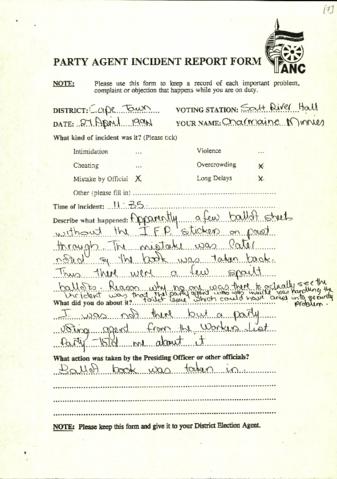 [1]
PARTY AGENT INCIDENT REPORT FORM
ANC
NOTE: Please use this form to keep a record of each important problem,
complaint or objection that happens while you are on duty.
DISTRICT: Cape Town VOTING STATION: Salt River Hall
DATE: 27 April 1994 YOUR NAME: Charmaine Minnies
What kind of incident was it? (Please tick)
Intimidation ... Violence ...
Cheating ... Overcrowding x
Mistake by Official X Long Delays x
Other (please fill in)
Time of incident: 11-35
Describe what happened: Apparently a few ballot sheets
without the I.F.P. stickers on past
through. The mistake was later
noted & the book was taken back.
Thus there were a few spoilt
ballots. Reason why no one was there to actually see the
incident was that party agent who was inside was handling the
toilet issue which could have arised into security
problem.
What did you do about it?
I was not there but a party
voting agent from the Workers List
Party told me about it
What action was taken by the Presiding Officer or other officials?
Ballot book was taken in
NOTE: Please keep this form and give it to your District Election Agent.